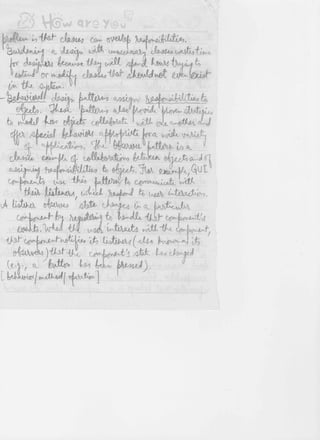 How are you
problem is that classes can overlap responsibilities.
Burdening a design with unnecessary classes wastes time
for designers because they will spend hours trying to
extend or modify classes that should not even exist
in the system.
- Behavioural design patterns assign responsibilities to
objects. These patterns also provide proven strategies
to model how objects collaborate with one another and
offer special behaviors appropriate for a wide variety
of applications. The Observer pattern is a
classic example of collaborations between objects and of
assigning responsibilities to objects. For example, GUI
components use this pattern to communicate with
their listeners which respond to user interaction.
A listener observes state changes in a particular
component by registering to handle that component's
events. When the user interacts with the component,
that component notifies its listeners (also known as its
observers) that the component's state has changed
(e.g., a button has been pressed).
[behavior/method/operation]